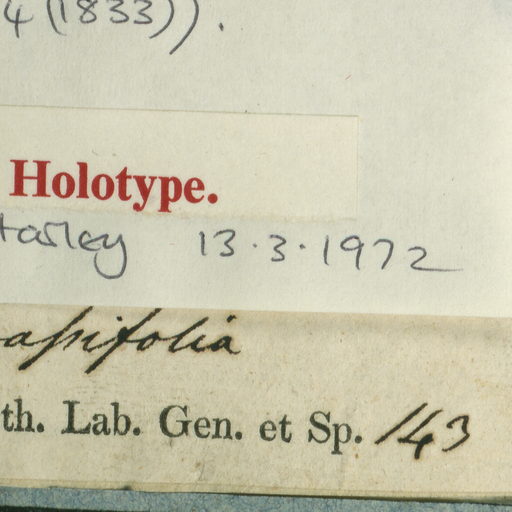 4 (1833)).
Holotype.
Harley 13.3.1972
assifolia
th. Lab. Gen. et Sp. 143